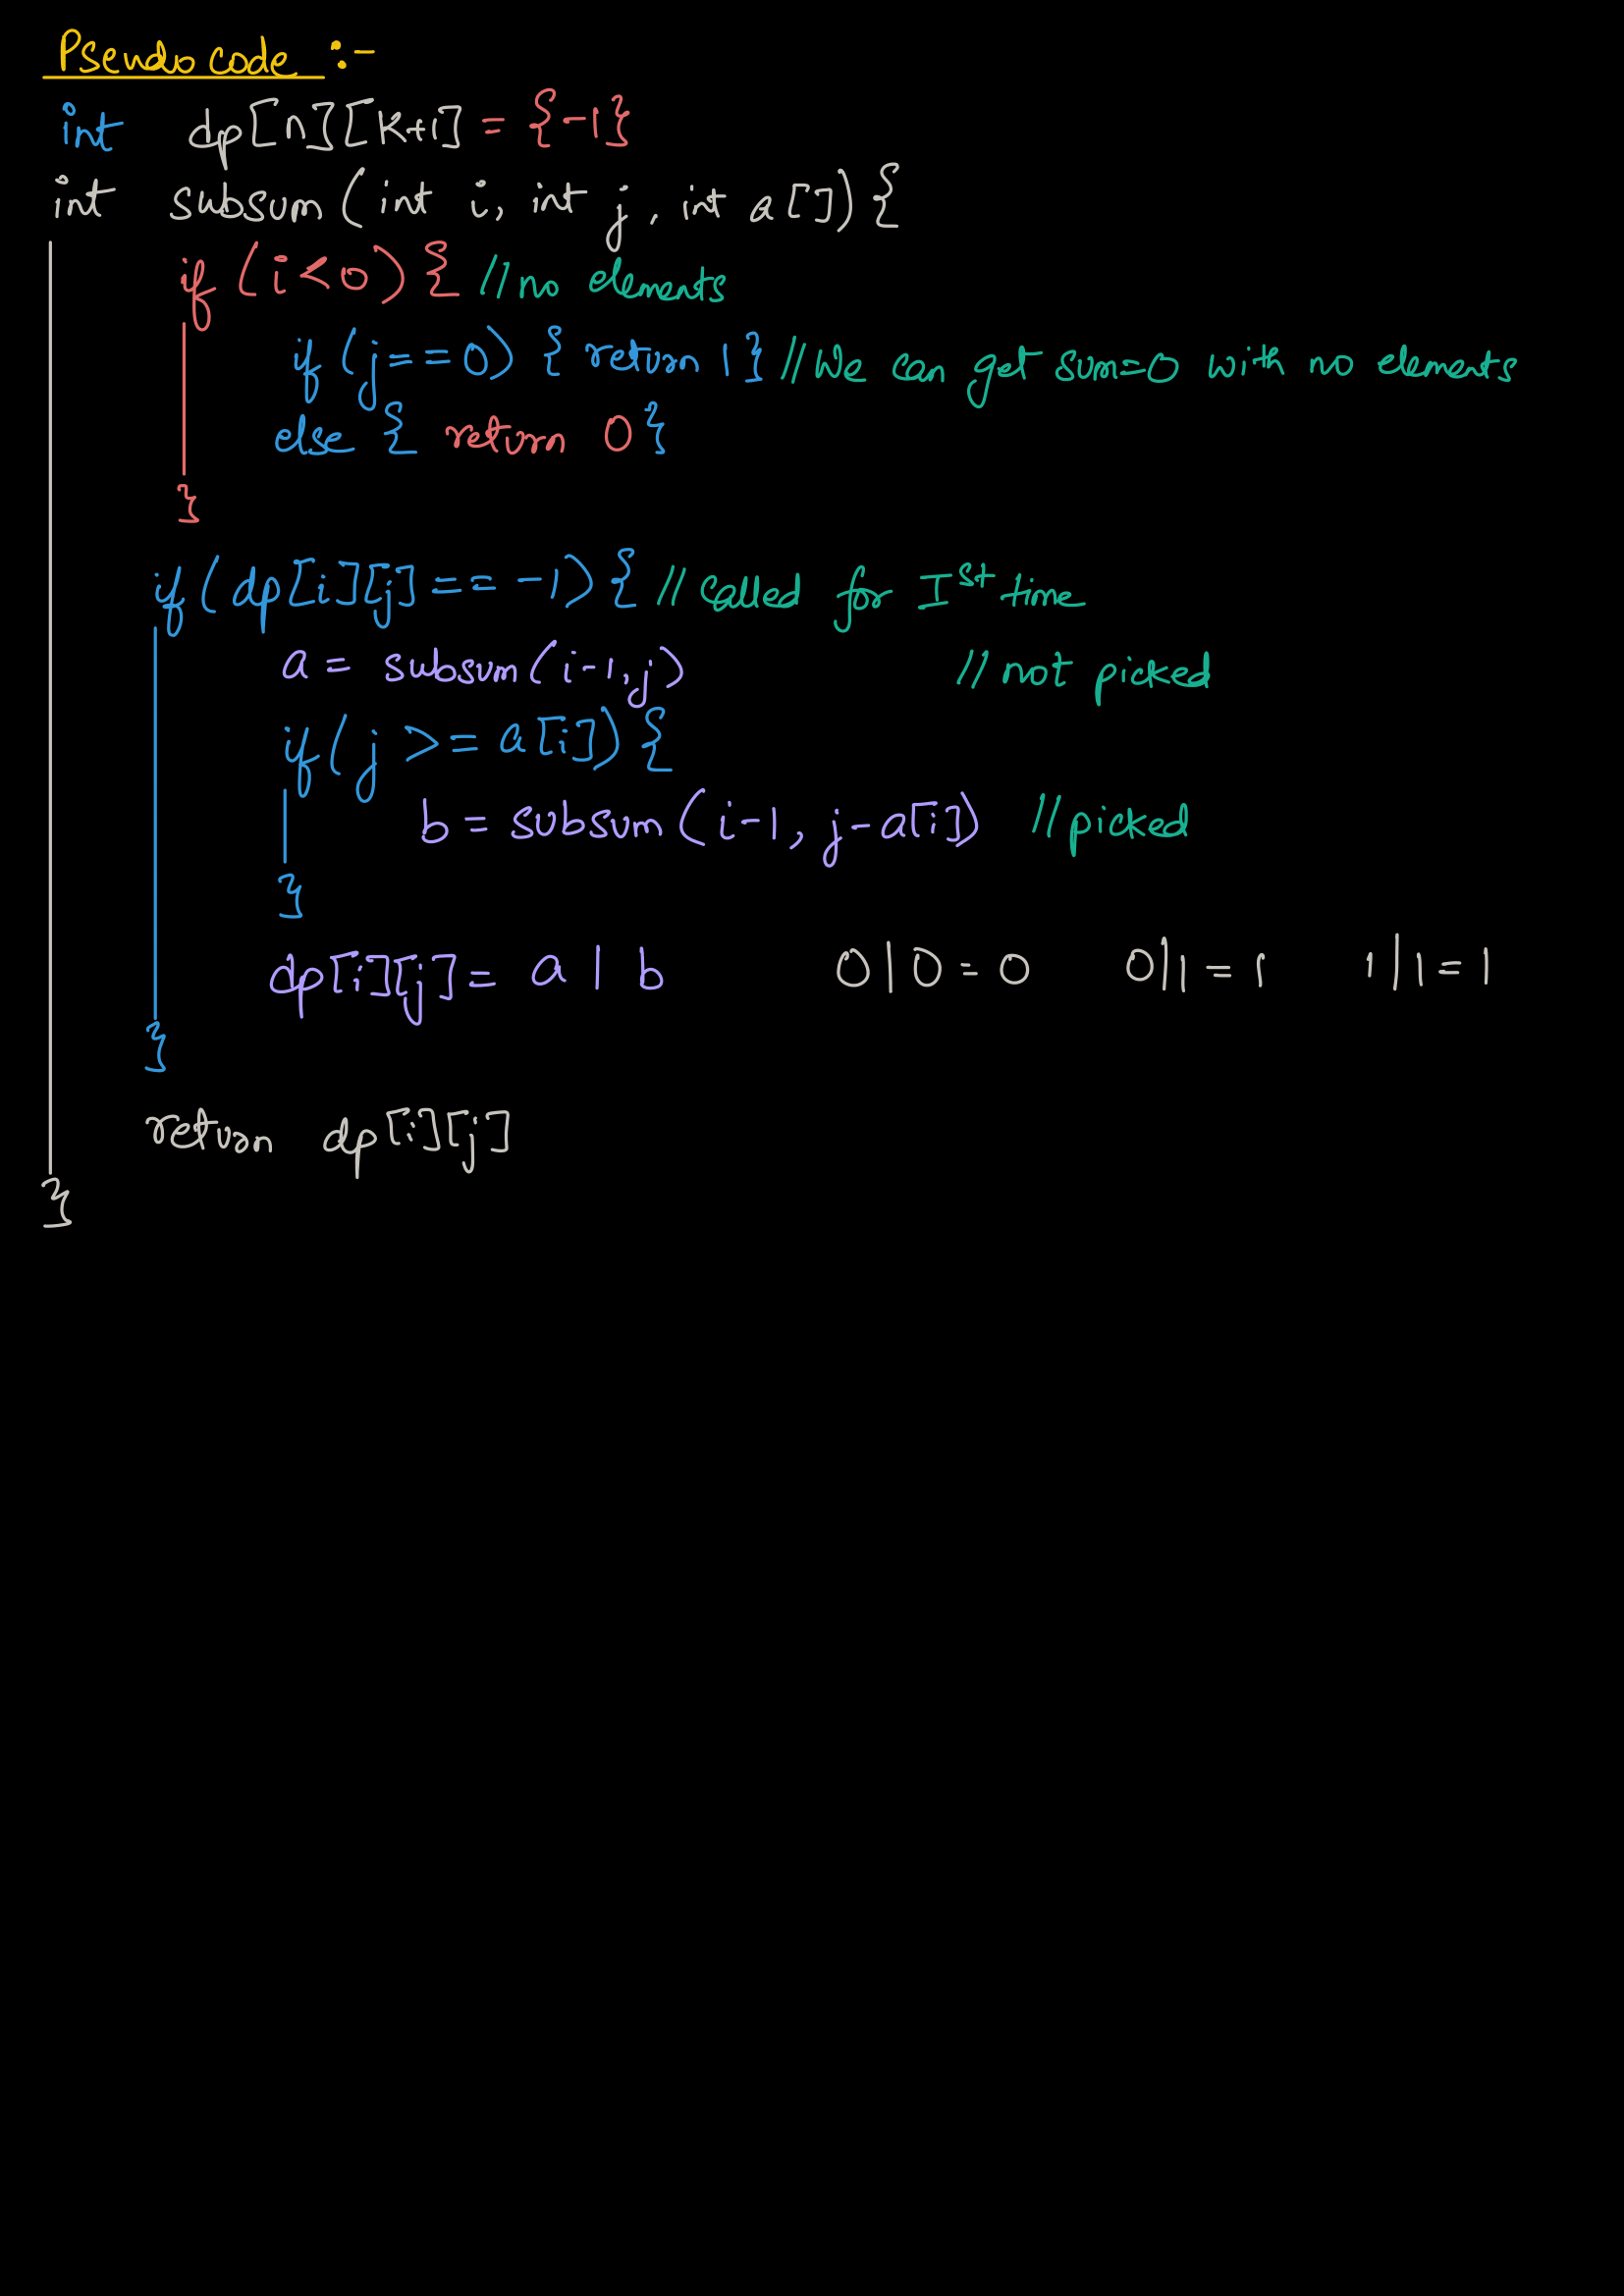 Pseudo code :-
int dp[n][K+1] = {-1}
int subsum(int i, int j, int a[]){
if (i<0) { //no elements
if (j==0) { return 1} //We can get sum=0 with no elements
else { return 0}
}
if(dp[i][j] == -1){ // called for Ist time
a = subsum(i-1,j) // not picked
if(j >= a[i]){
b = subsum(i-1, j-a[i]) //picked
}
dp[i][j] = a | b 0|0 = 0 0|1 = 1 1|1 = 1
}
return dp[i][j]
}